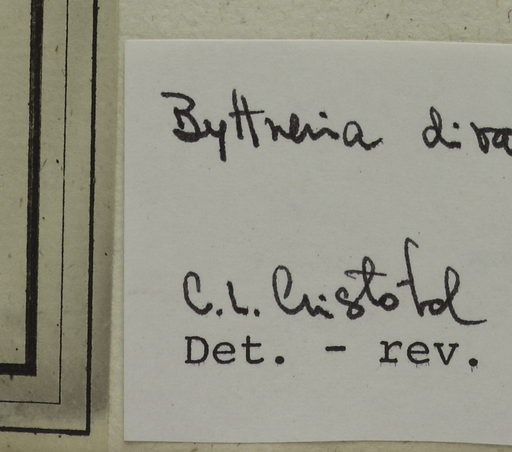 Byttneria diva
C. L. Cristóbal
Det. - rev.